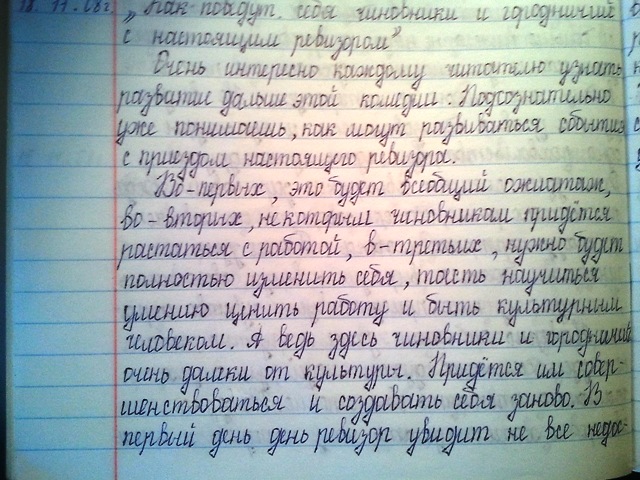 18. 11. 08г.
„Как поведут себя чиновники и городничий
с настоящим ревизором”
Очень интересно каждому читателю узнать
развитие дальше этой комедии. Подсознательно
уже понимаешь, как могут развиваться события
с приездом настоящего ревизора.
Во-первых, это будет всеобщий ожиотаж,
во-вторых, некоторым чиновникам придётся
растаться с работой, в-третьих, нужно будет
полностью изменить себя, тоесть научиться
умению ценить работу и быть культурным
человеком. А ведь здесь чиновники и городничий
очень далеки от культуры. Придётся им совер-
шенствоваться и создавать себя заново. В
первый день день ревизор увидит не все недос-